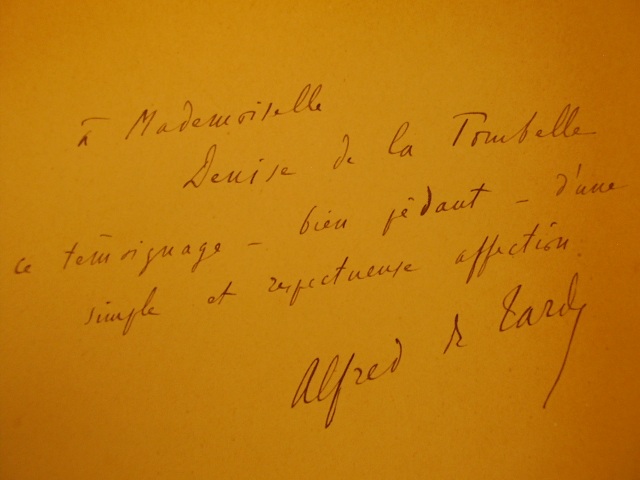 à Mademoiselle
Denise de la Tombelle
ce témoignage – bien pédant – d'une
simple et respectueuse affection.
Alfred de Tarde